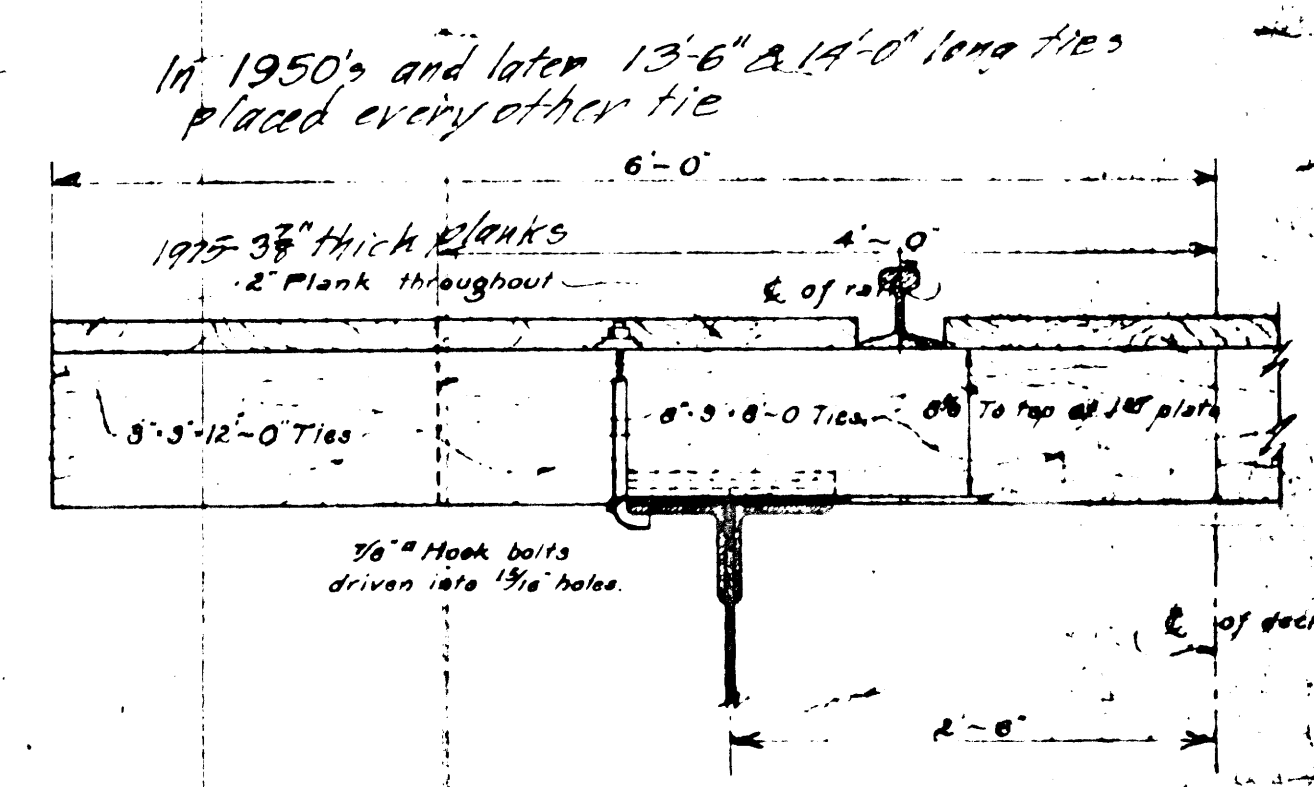 In 1950's and later 13'-6" & 14'-0" long ties
placed every other tie
6'-0"
1975- 3⅞" thick planks
4'-0"
2" Plank throughout
℄ of rail
8"·9"·12'-0" Ties
8"·9"·8'-0 Ties
To top of plate
7/8"ø Hook bolts
driven into 15/16" holes.
℄ of deck
2'-8"